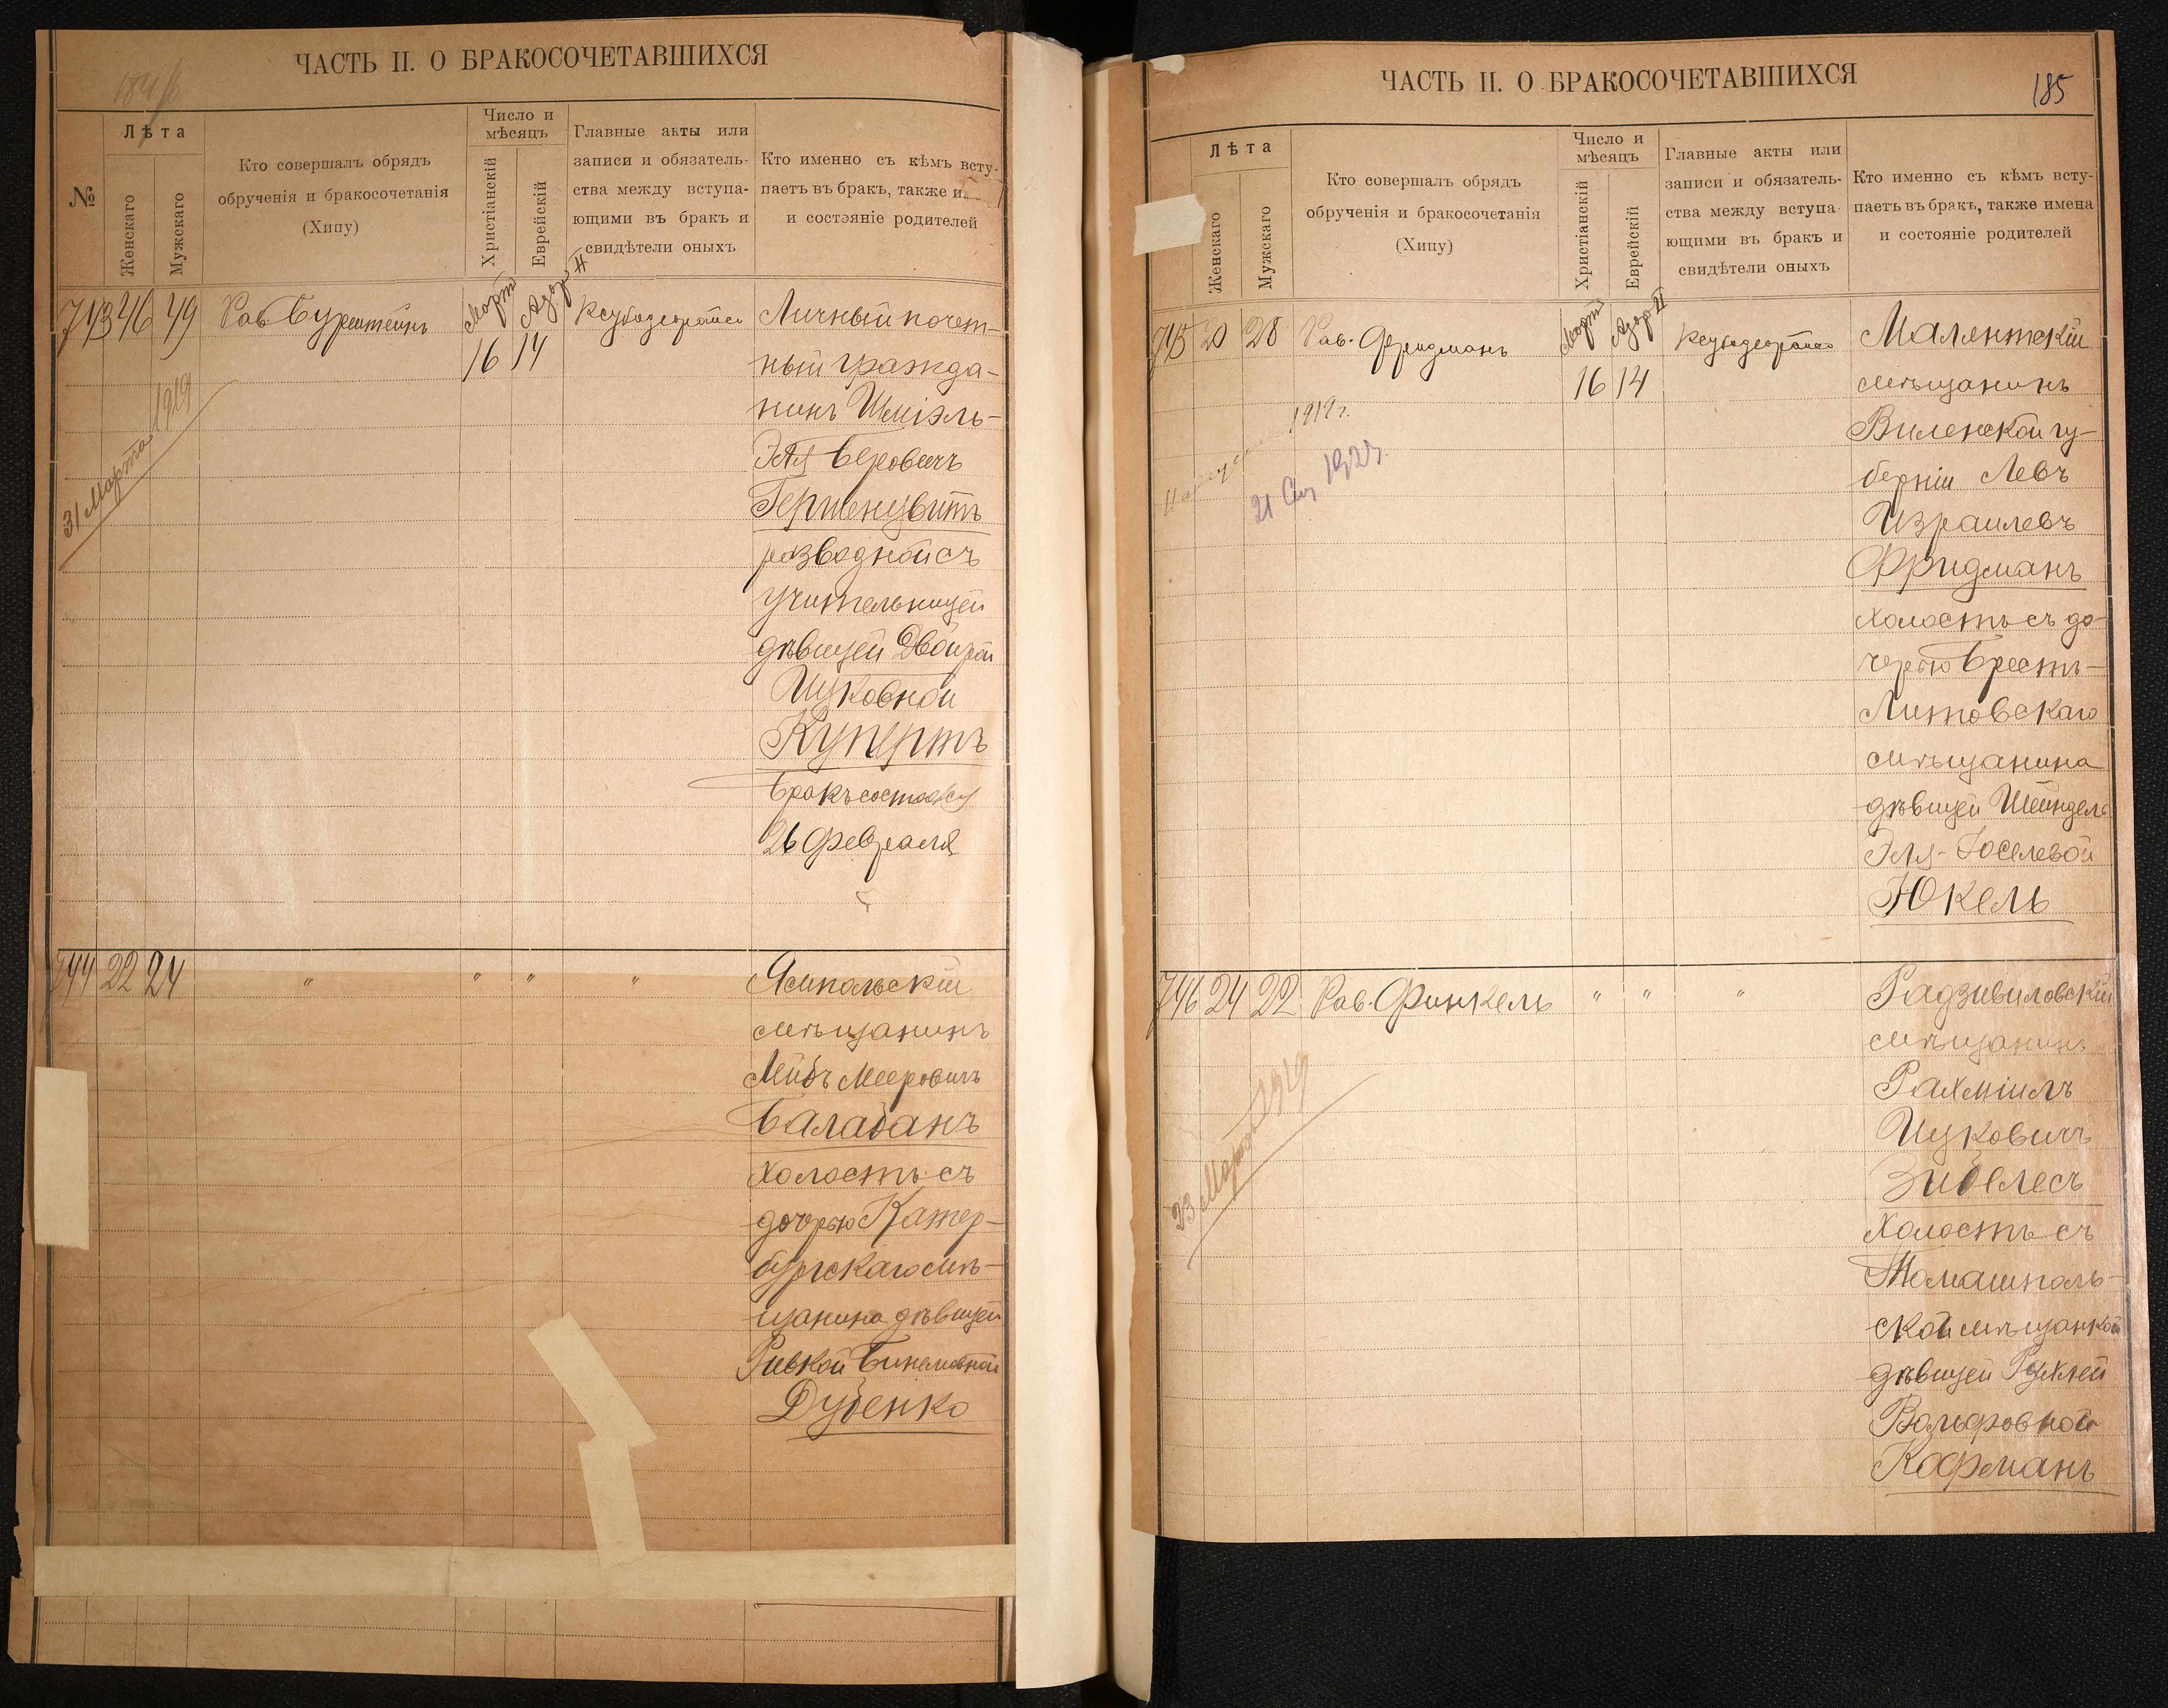 ЧАСТЬ II. О БРАКОСОЧЕТАВШИХСЯ
№
Лѣта
Женскаго
Мужскаго
Кто совершалъ обрядъ
обрученія и бракосочетанія
(Хипу)
Число и
мѣсяцъ
Христіанскій
Еврейскій
Главные акты или
записи и обязатель-
ства между вступа-
ющими въ бракъ и
свидѣтели оныхъ
Кто именно съ кѣмъ всту-
паетъ въ бракъ, также и
и состояніе родителей
743 46 49
Рав. Бурштейнъ
Мартъ
16
Адаръ II
14
Личный почет-
ный гражда-
нинъ Шміэль-
Эля Беровичъ
разводной съ
учительницей
дѣвицей Двойрой
Ицковной
Купертъ
Бракъ состоялся
26 февраля
31 Марта 1919
744 22 24
" " " "
Ямпольскій
мѣщанинъ
Лейбъ Мееровичъ
Балабанъ
Холостъ съ
дочерью Катер-
бургскаго мѣ-
щанина дѣвицей
Ривкой
Дубенко
ЧАСТЬ II. О БРАКОСОЧЕТАВШИХСЯ
185
Лѣта
Женскаго
Мужскаго
Кто совершалъ обрядъ
обрученія и бракосочетанія
(Хипу)
Число и
мѣсяцъ
Христіанскій
Еврейскій
Главные акты или
записи и обязатель-
ства между вступа-
ющими въ бракъ и
свидѣтели оныхъ
Кто именно съ кѣмъ всту-
паетъ въ бракъ, также имена
и состояніе родителей
745 20 28
Рав. Фридманъ
Мартъ
16
Адаръ II
14
Малятскій
мѣщанинъ
Виленской гу-
берніи Левъ
Израилевъ
Фридманъ
холостъ съ до-
черью Брестъ-
Литовскаго
мѣщанина
дѣвицей Шейндель
Эля-Іоселевой
Юкель
1919 г.
746 24 22
Рав. Финкель
" " "
Радзивиловскій
мѣщанинъ
Рахміилъ
Ицковичъ
Зибелесъ
Холостъ съ
Томашполь-
ской мѣщанкой
дѣвицей Рухлей
Вольфовной
Кофманъ
23 Марта 1919